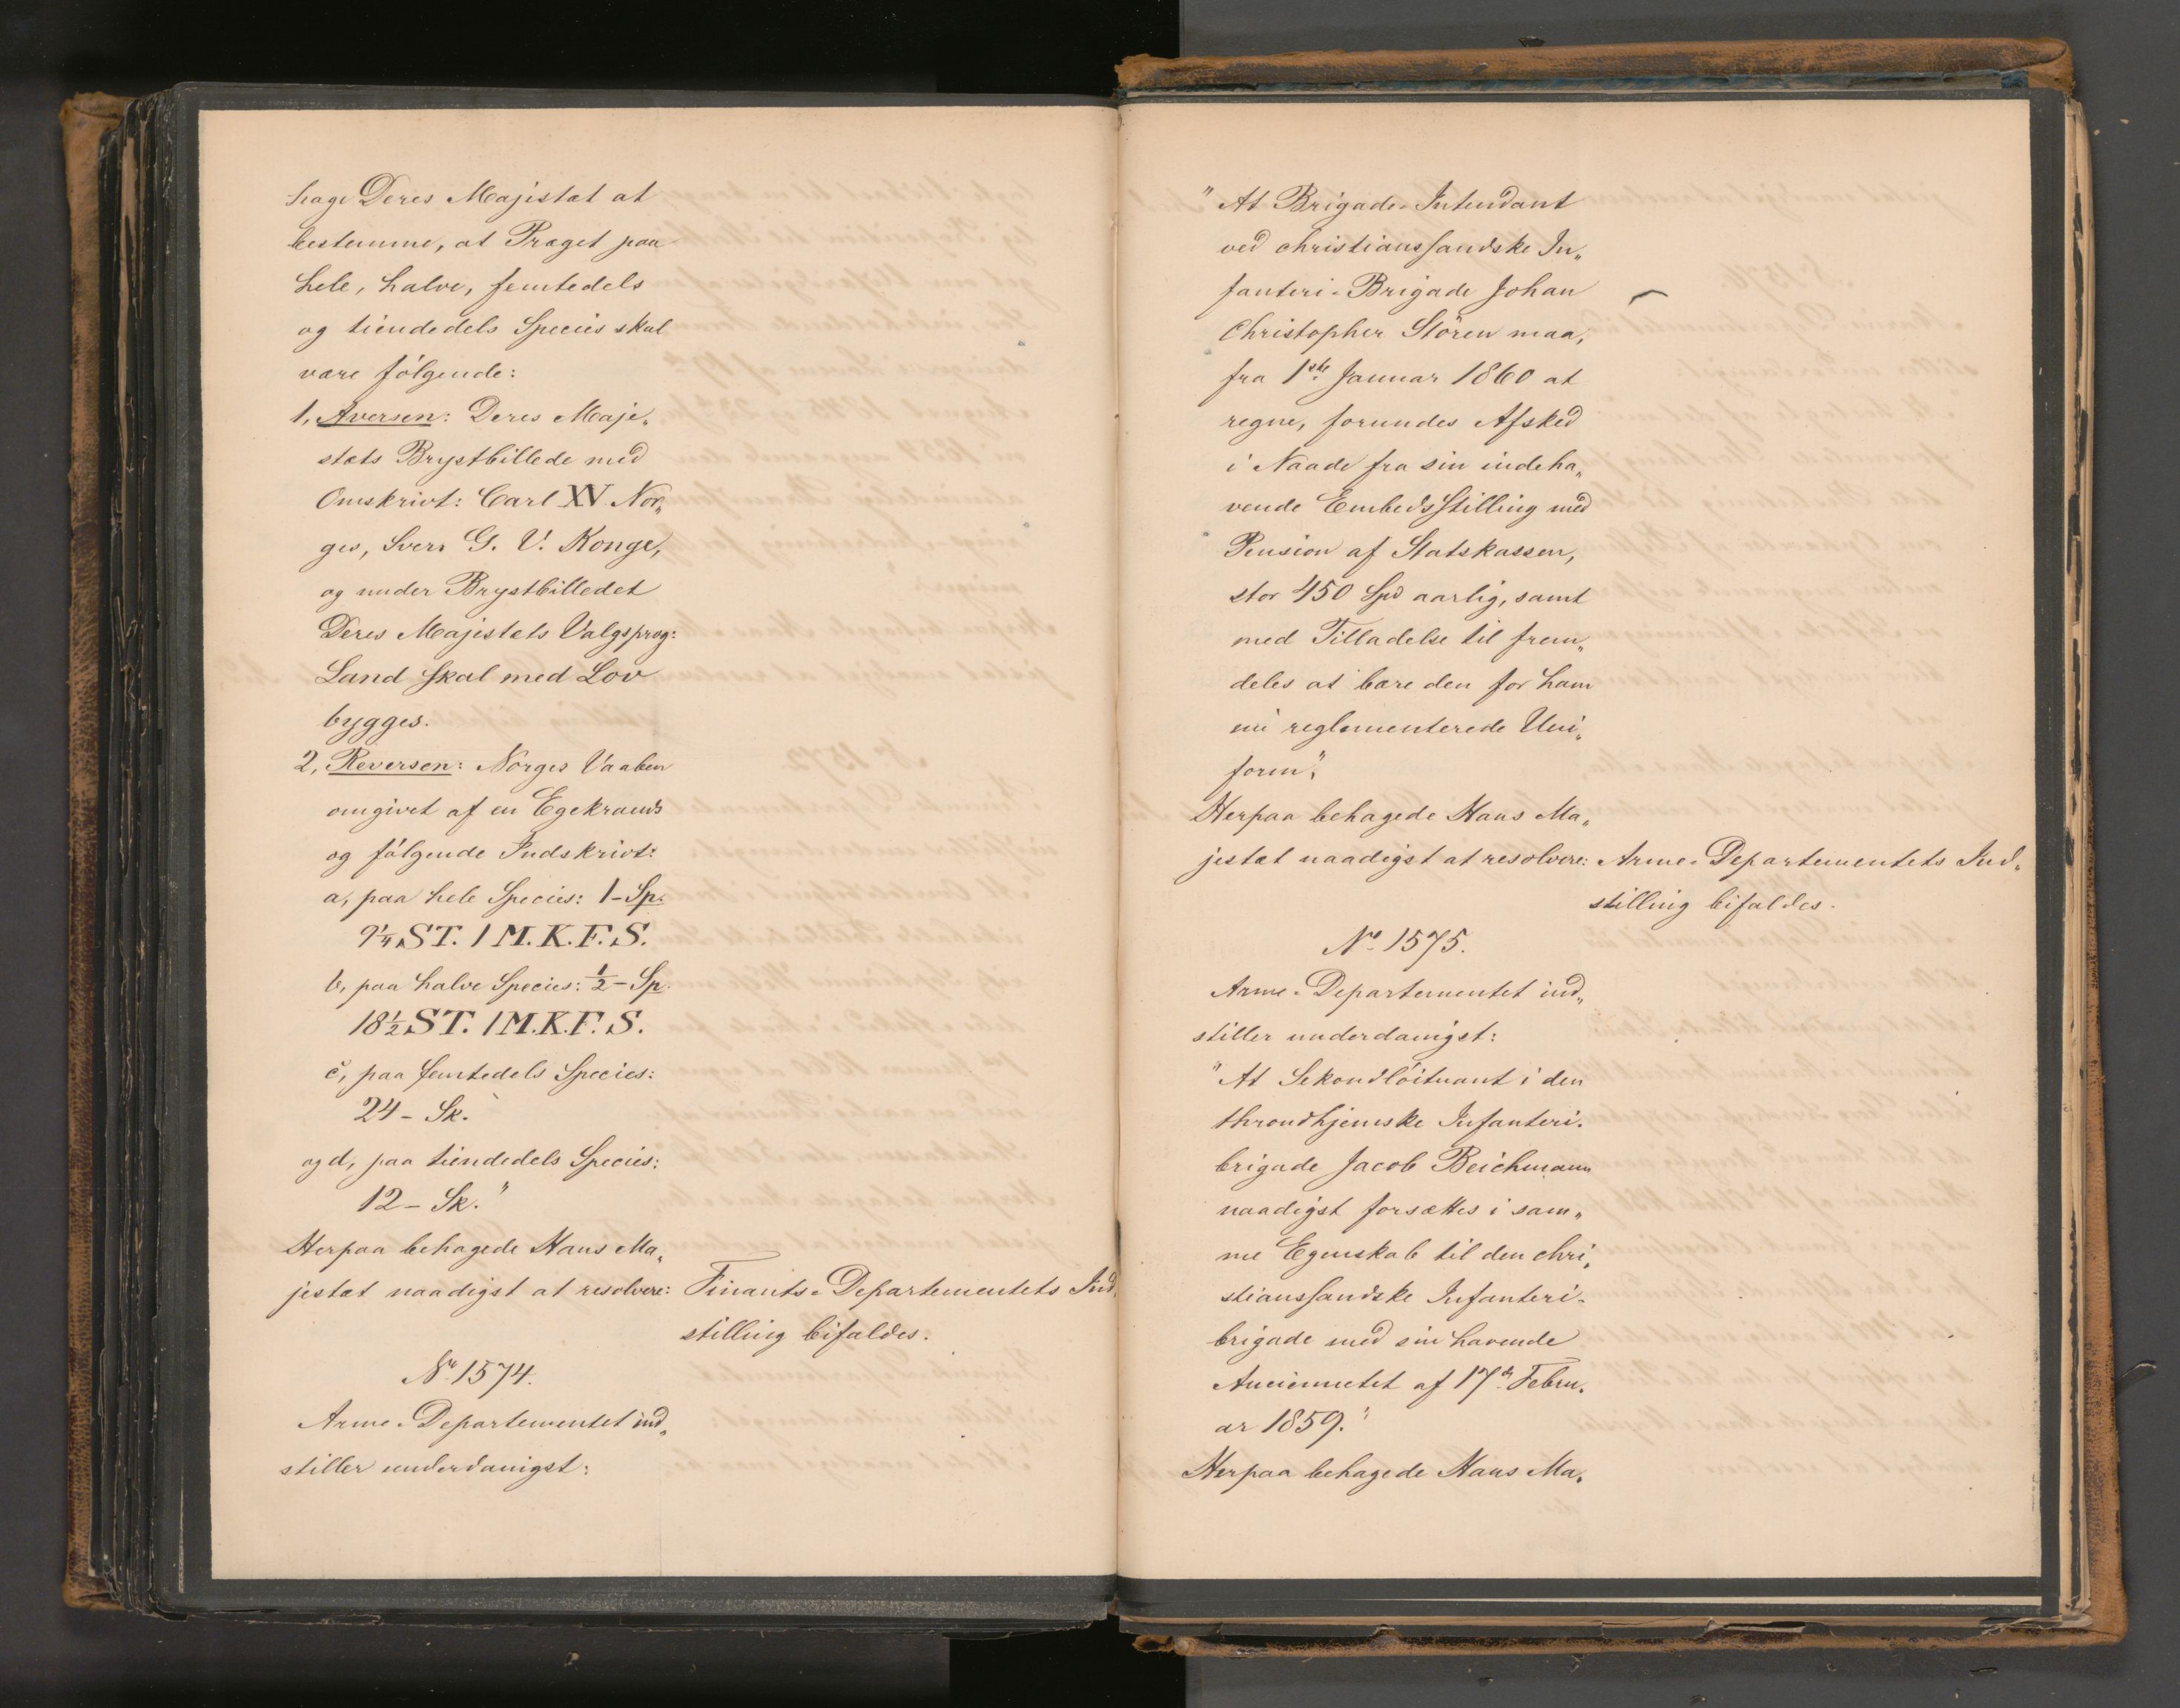 hage Deres Majestæt at
bestemme, at Præget paa
hele, halve, femtedels
og tiendedels Species skal
være følgende:
1, Aversen: Deres Maje„
stæts Brystbillede med
Omskrivt: Carl XV Nor„
ges, Sver. G. V. Konge,
og under Brystbilledet
Deres Majestæts Valgsprog:
Land skal med Lov
bygges.
2, Reversen: Norges Vaaben
omgivet af en Egekrands
og følgende Indskrivt:
a, paa hele Species: 1 - Sp.
9¼ ST. 1 M. K. F. S.
b, paa halve Species: ½ - Sp.
18½ ST. 1 M. K. F. S.
c, paa femtedels Species:
24 - Sk.
og d, paa tiendedels Species:
12 - Sk."
Herpaa behagede Hans Ma„
jestæt naadigst at resolvere: Finants-Departementets Ind„
stilling bifaldes.
No 1574.
Arme-Departementet ind„
stiller underdanigst:
"At Brigade-Intendant
ved christianssandske In„
fanteri-Brigade Johan
Christopher Stören maa,
fra 1ste Januar 1860 at
regne, forundes Afsked
i Naade fra sin indeha„
vende Embedsstilling med
Pension af Statskassen,
stor 450 Spd aarlig, samt
med Tilladelse til frem„
deles at bære den for ham
nu reglementerede Uni„
form".
Herpaa behagede Hans Ma„
jestæt naadigst at resolvere: Arme-Departementets Ind„
stilling bifaldes.
No 1575.
Arme-Departementet ind„
stiller underdanigst:
"At Sekondlöitnant i den
throndhjemske Infanteri-
brigade Jacob Beichmann
naadigst forsættes i sam„
me Egenskab til den chri„
stianssandske Infanteri-
brigade med sin havende
Anciennetet af 17de Febru„
ar 1859."
Herpaa behagede Hans Ma„